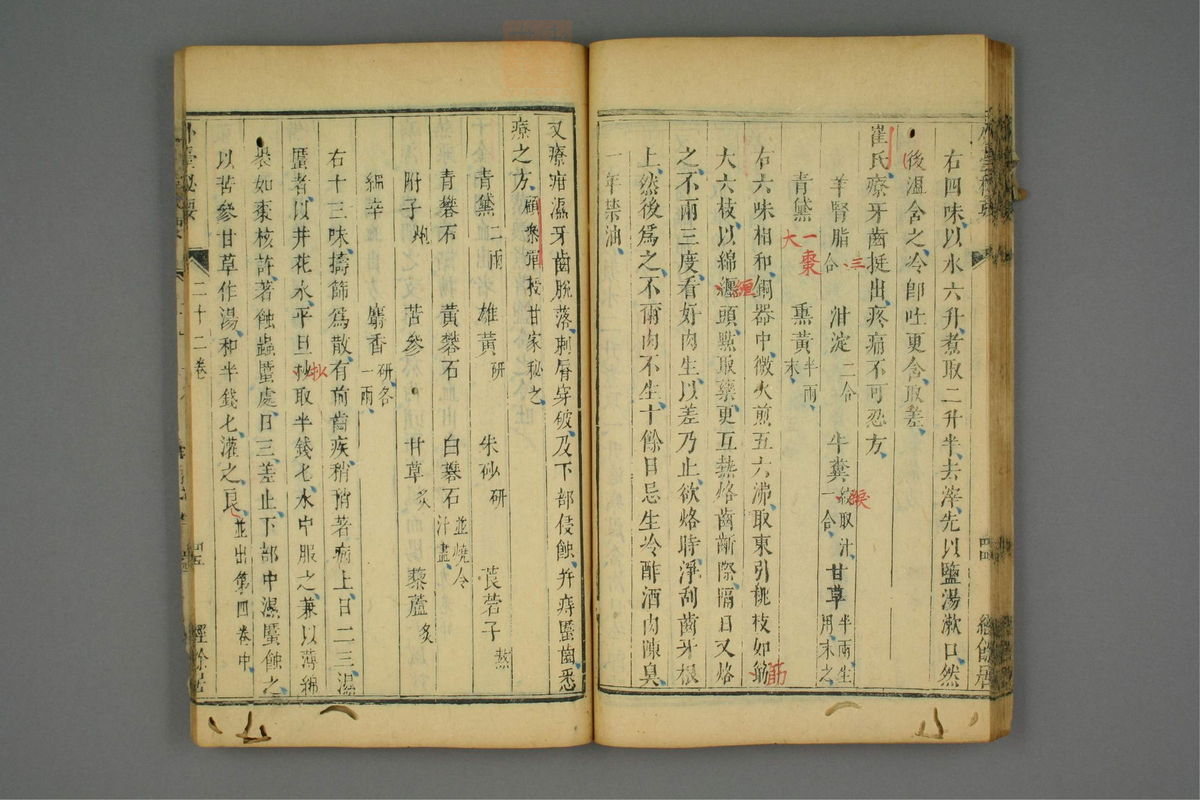 右四味以水六升煮取二升半去滓先以鹽湯漱口然
後溫含之冷卽吐更含取差
崔氏療牙齒挺出疼痛不可忍方
羊腎脂合 三 泔淀二合 牛糞絞取汁一合 綟 甘草半兩生用末之
青黛 一棗大 熏黃半兩末
右六味相和銅器中微火煎五六沸取東引桃枝如筯 筋
大六枝以綿纏頭點取藥更互熱烙齒齗際隔日又烙
之不兩三度看好肉生以差乃止欲烙時淨刮齒牙根
上然後爲之不爾肉不生十餘日忌生冷酢酒肉陳臭
一年禁油
又療疳濕牙齒脫落刺脣穿破及下部侵蝕幷痔䘌齒悉
療之方 顧衆彈枝甘家秘之
青黛二兩 雄黃研 朱砂研 莨菪子熬
青礬石 黃礬石 白礬石並燒令汁盡
附子炮 苦參 甘草炙 藜蘆炙
細辛 麝香研各一兩
右十三味擣篩爲散有前齒疾稍稍著病上日二三濕
䘌者以井花水平旦抄取半錢匕水中服之兼以薄綿
裝如棗核許著蝕蟲䘌處日三差止下部中濕䘌蝕之
以苦參甘草作湯和半錢匕灌之良 並出第四卷中
外臺秘要
二十二卷
四五
經餘居
四四
經餘居